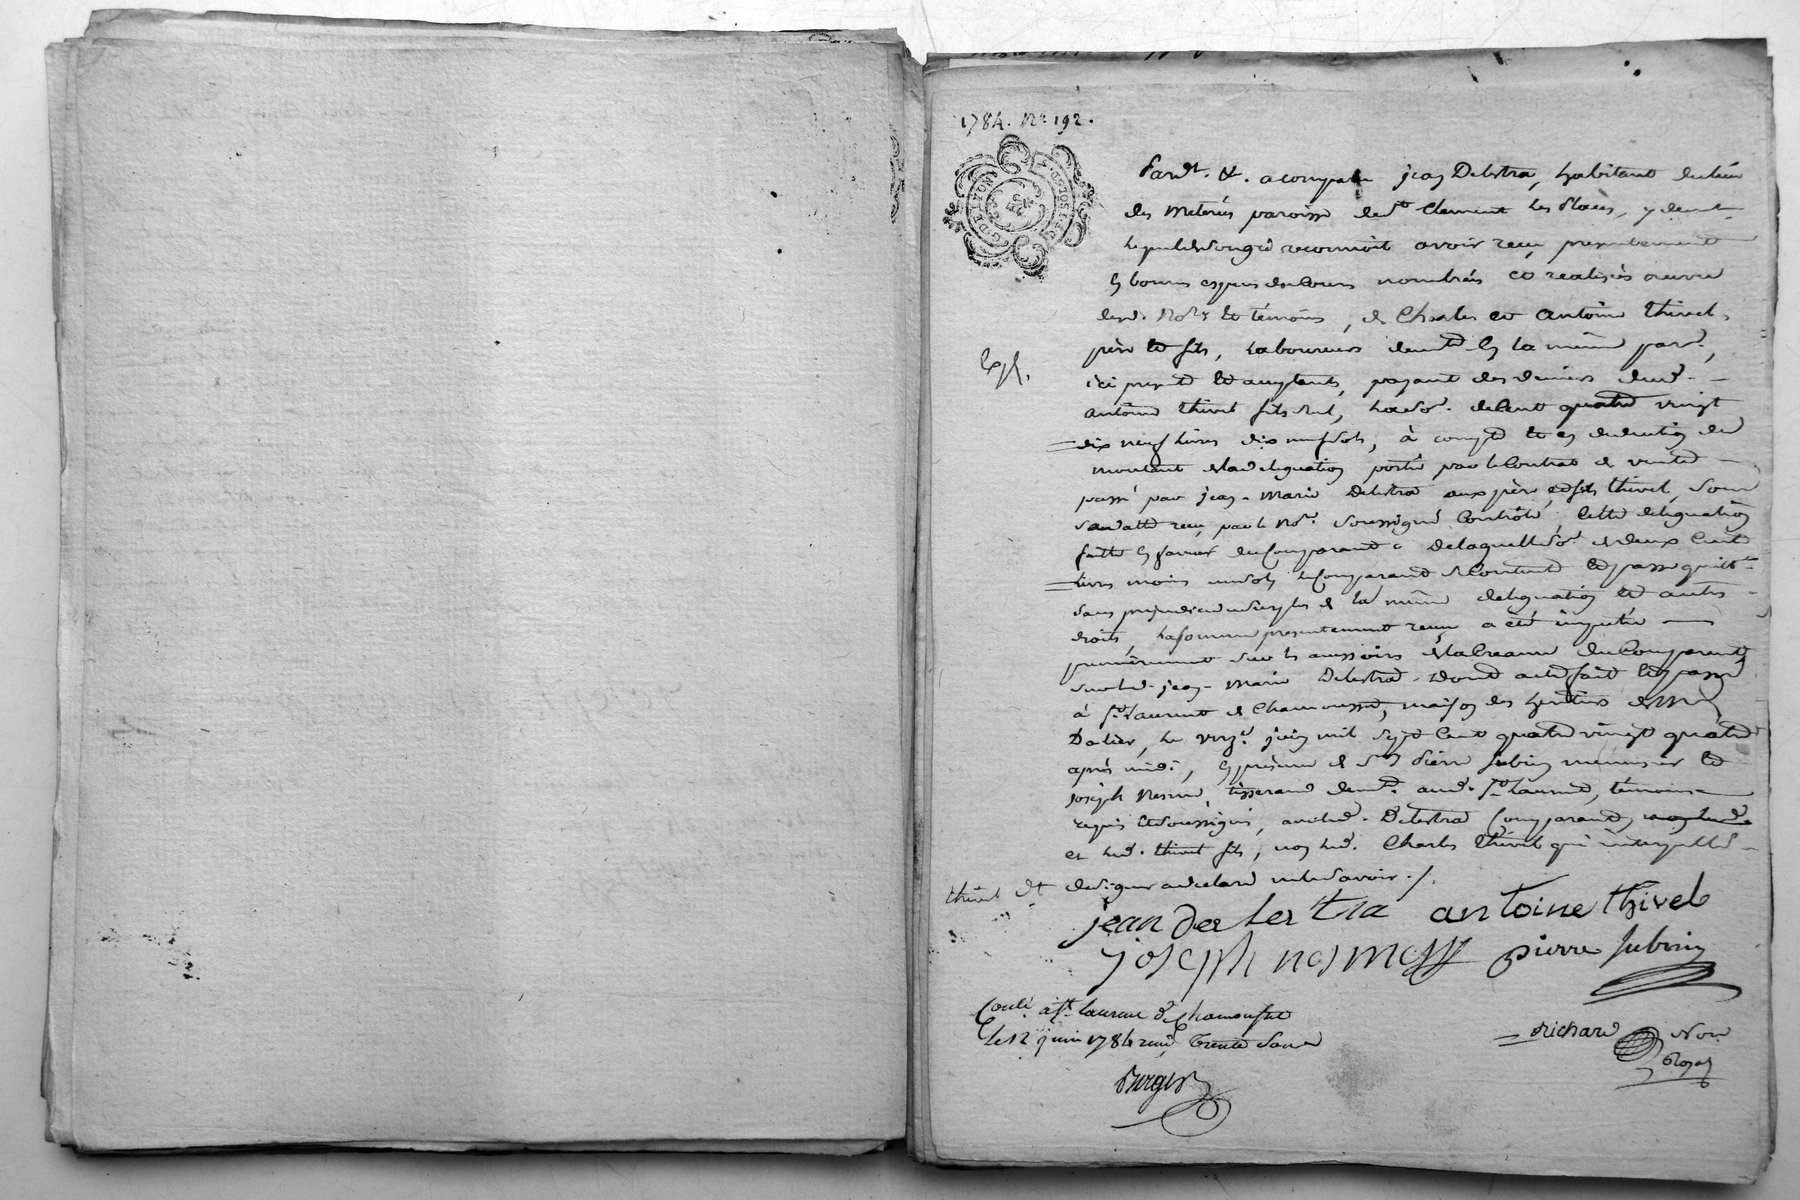 1784. No. 192.
G. DE LYON
DEUX SOLS
Pardt. &. a comparu jean Delestra, habitant du lieu
des Meteries paroisse de St. Clement Les Places, y demt.
Lequel de son gré reconnoit avoir reçu presentement
en bonnes especes de cours nombrées et realisées au vu
desd. No.re et témoins, de Charles et Antoine Thivel,
père et fils, Laboureurs demt. en la même parr.,
Exp.
ici present et acceptants, payant des deniers dud.
antoine Thivel fils seul, La so.e de Cent quatre vingt
dix neuf Livres dix neuf sols, à compte et en deduction du
montant de la deleguation porté par le Contrat de vente
passé par jean-Marie Delestra aux père et fils Thivel, sous
sa datte reçu par le No.re soussigné Contrôlé; Cette deleguation
faitte en faveur du Comparant; De laquelle so.e de deux Cent
Livres moins un sol, le Comparant se Contente et passe quitt.ce
sans prejudice du surplus de la même deleguation et autres
droits, La somme presentement reçue a été imputée
premièrement sur les accessoires de la Creance du Comparant
sur led. jean-Marie Delestra. Dont acte fait et passé
à St. Laurent de Chamousset, maison des heritiers de M.
Dalier, Le onze juin mil sept Cent quatre vingt quatre
après midi, en présence de Srs Pierre Jubin menuisier et
Joseph Nesme, tisserand demt. aud. St. Laurent, témoins
requis et soussignés, avec led. Delestra Comparant
et led. Thivel fils, non led. Charles Thivel qui interpellé
de signer a declaré ne le savoir./.
Thivel
jean delestra antoine thivel
joseph nesme pierre Jubin
Conlé. à St. Laurent de Chamousset
le 12 juin 1784 reçu Trente sous
Burger
Richard Nore
Royal